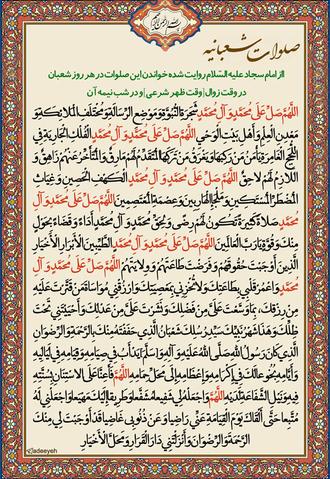 بسم الله الرحمن الرحیم
صلوات شعبانیه
از امام سجاد علیه السّلام روایت شده خواندن این صلوات در هر روز شعبان
در وقت زوال (وقت ظهر شرعی) و در شب نیمه آن
اَللّهُمَّ صَلِّ عَلی مُحَمَّدٍ وَ آلِ مُحَمَّدٍ شَجَرَةِ النُّبُوَّةِ وَ مَوْضِعِ الرِّسالَةِ وَ مُخْتَلَفِ الْمَلائِکَةِ وَ
مَعْدِنِ الْعِلْمِ وَ اَهْلِ بَیْتِ الْوَحْیِ اَللّهُمَّ صَلِّ عَلی مُحَمَّدٍ وَ آلِ مُحَمَّدٍ الْفُلْکِ الْجارِیَةِ فِی
اللُّجَجِ الْغامِرَةِ یَأْمَنُ مَنْ رَکِبَها وَ یَغْرَقُ مَنْ تَرَکَهَا الْمُتَقَدِّمُ لَهُمْ مارِقٌ وَ الْمُتَاَخِّرُ عَنْهُمْ زاهِقٌ وَ
اللّازِمُ لَهُمْ لاحِقٌ اَللّهُمَّ صَلِّ عَلی مُحَمَّدٍ وَ آلِ مُحَمَّدٍ الْکَهْفِ الْحَصینِ وَ غِیاثِ
الْمُضْطَرِّ الْمُسْتَکینِ وَ مَلْجَاءِ الْهارِبینَ وَ عِصْمَةِ الْمُعْتَصِمینَ اَللّهُمَّ صَلِّ عَلی مُحَمَّدٍ وَ آلِ
مُحَمَّدٍ صَلاةً کَثیرَةً تَکُونُ لَهُمْ رِضًی وَ لِحَقِّ مُحَمَّدٍ وَ آلِ مُحَمَّدٍ اَداءً وَ قَضاءً بِحَوْلٍ
مِنْکَ وَ قُوَّةٍ یا رَبَّ الْعالَمینَ اَللّهُمَّ صَلِّ عَلی مُحَمَّدٍ وَ آلِ مُحَمَّدٍ الطَّیِّبینَ الْاَبْرارِ الْاَخْیارِ
الَّذینَ اَوْجَبْتَ حُقُوقَهُمْ وَ فَرَضْتَ طاعَتَهُمْ وَ وِلایَتَهُمْ اَللّهُمَّ صَلِّ عَلی مُحَمَّدٍ وَ آلِ
مُحَمَّدٍ وَ اعْمُرْ قَلْبی بِطاعَتِکَ وَ لا تُخْزِنی بِمَعْصِیَتِکَ وَ ارْزُقْنی مُواساةَ مَنْ قَتَّرْتَ عَلَیْهِ
مِنْ رِزْقِکَ بِما وَسَّعْتَ عَلَیَّ مِنْ فَضْلِکَ وَ نَشَرْتَ عَلَیَّ مِنْ عَدْلِکَ وَ اَحْیَیْتَنی تَحْتَ
ظِلِّکَ وَ هذا شَهْرُ نَبِیِّکَ سَیِّدِ رُسُلِکَ شَعْبانُ الَّذی حَفَفْتَهُ مِنْکَ بِالرَّحْمَةِ وَ الرِّضْوانِ
الَّذی کانَ رَسُولُ اللهِ صَلَّی اللهُ عَلَیْهِ وَ آلِهِ وَ سَلَّمَ یَدْاَبُ فی صِیامِهِ وَ قِیامِهِ فی لَیالیهِ
وَ اَیّامِهِ بُخُوعًا لَکَ فی اِکْرامِهِ وَ اِعْظامِهِ اِلی مَحَلِّ حِمامِهِ اَللّهُمَّ فَاَعِنّا عَلَی الْاِسْتِنانِ بِسُنَّتِهِ
فیهِ وَ نَیْلِ الشَّفاعَةِ لَدَیْهِ اَللّهُمَّ وَ اجْعَلْهُ لی شَفیعًا مُشَفَّعًا وَ طَریقًا اِلَیْکَ مَهْیَعًا وَ اجْعَلْنی لَهُ
مُتَّبِعًا حَتّی اَلْقاکَ یَوْمَ الْقِیامَةِ عَنّی راضِیًا وَ عَنْ ذُنُوبی غاضِیًا قَدْ اَوْجَبْتَ لی مِنْکَ
الرَّحْمَةَ وَ الرِّضْوانَ وَ اَنْزَلْتَنی دارَ الْقَرارِ وَ مَحَلَّ الْاَخْیارِ
adeeyeh